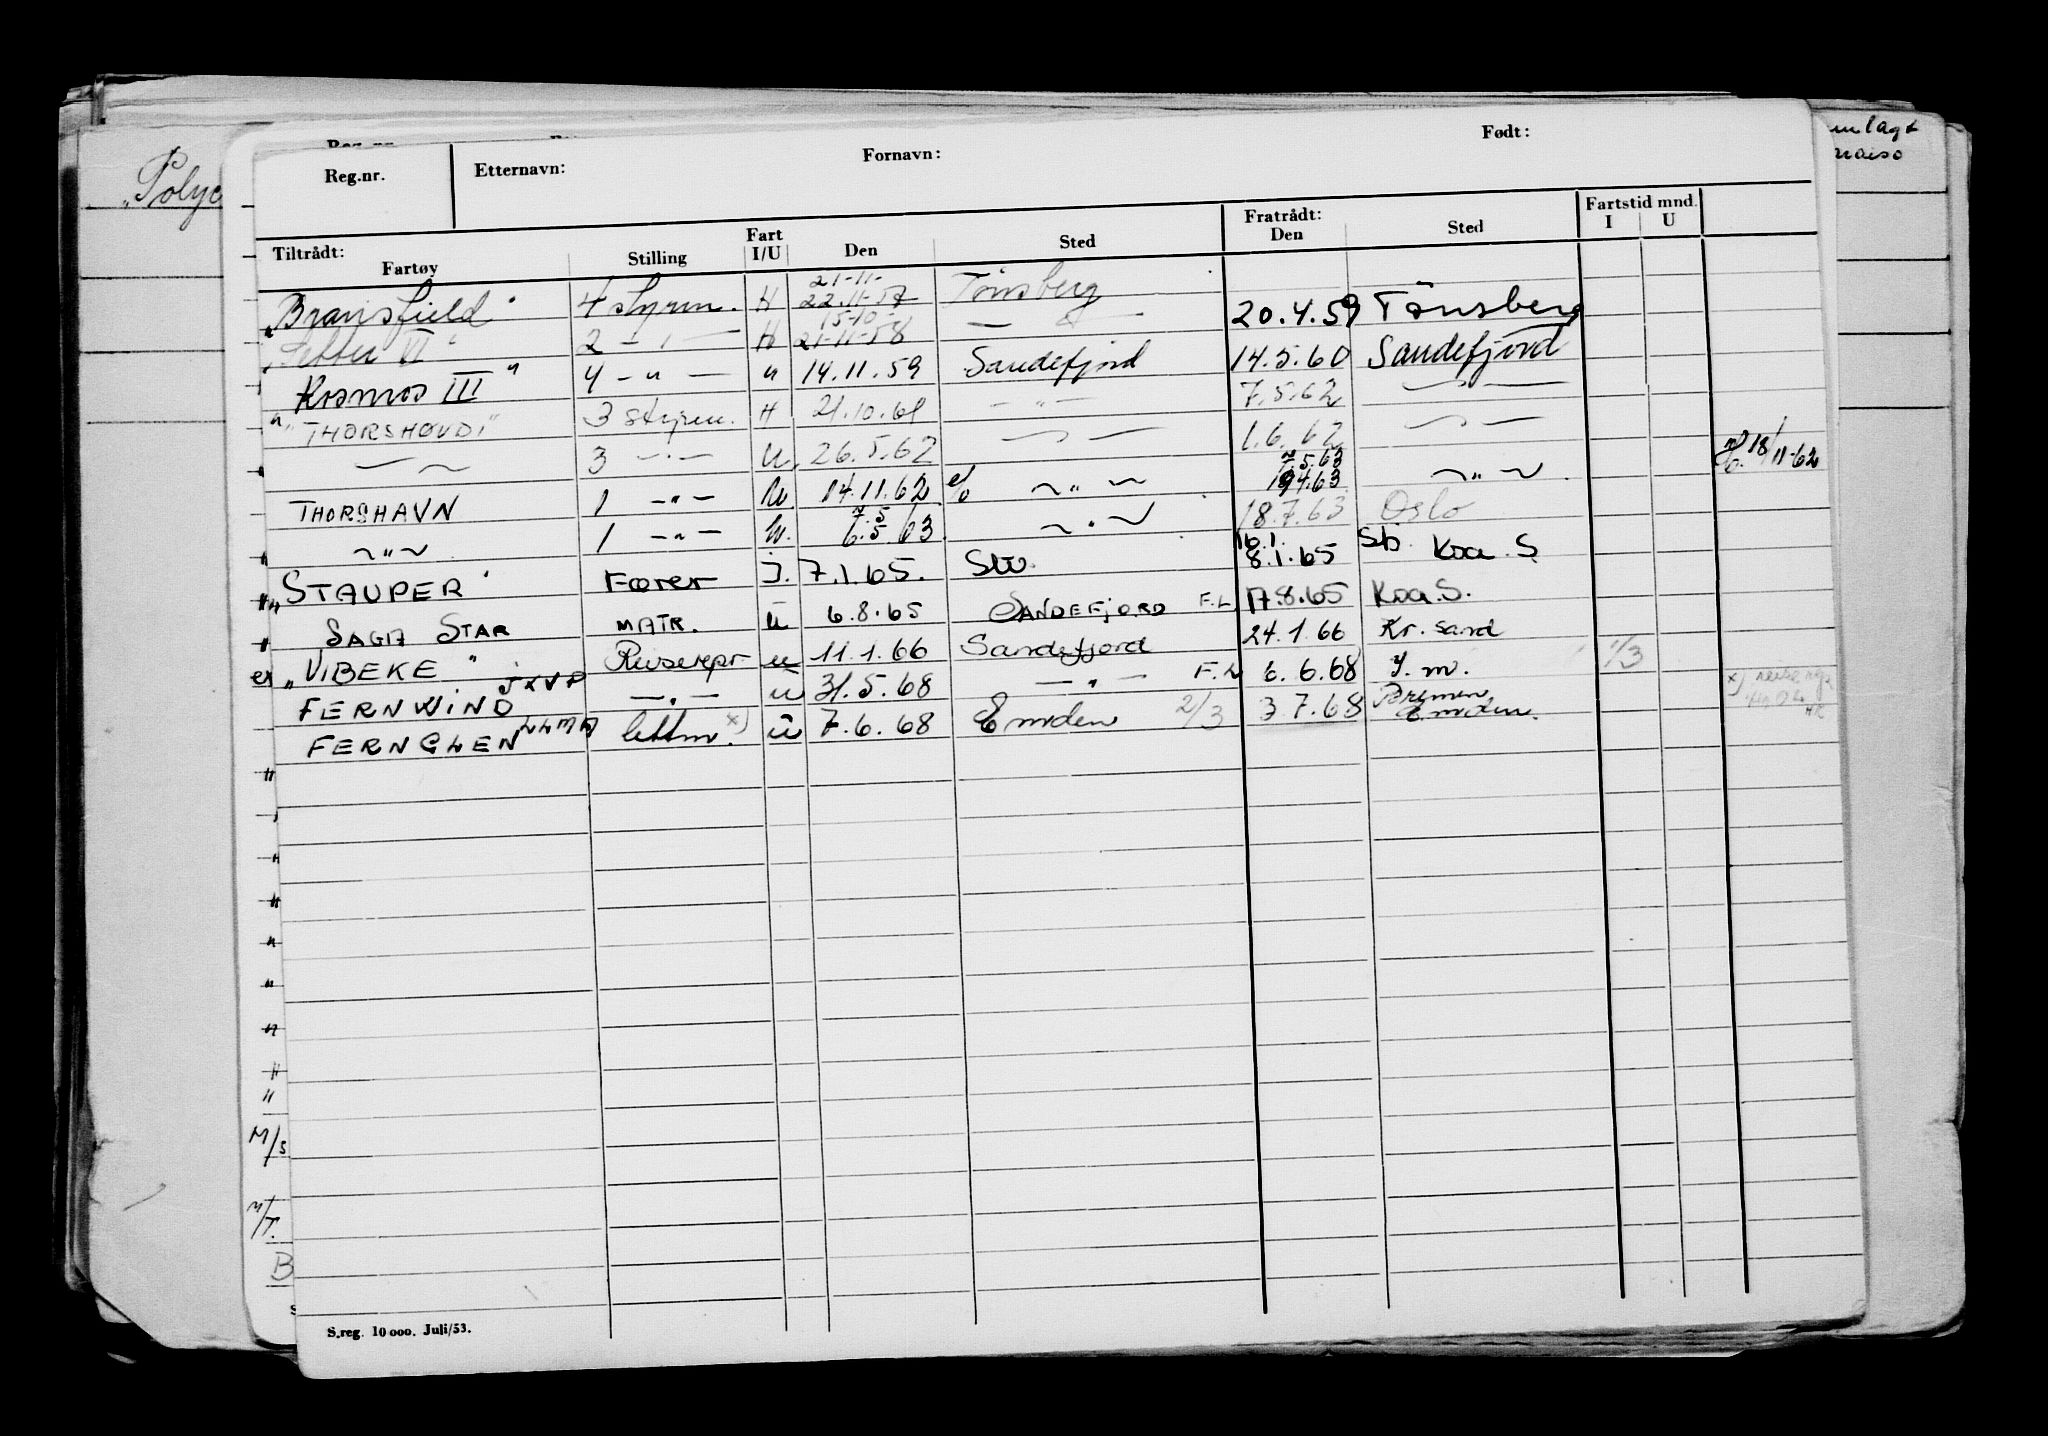 Reg.nr. Etternavn: Fornavn: Født:
Tiltrådt: Fartøy Stilling Fart I/U Den Sted Fratrådt: Den Sted Fartstid mnd. I U
"Polyc
"Bransfield" 4 styrm. H 21-11- 22.11-57 Tønsberg 20.4.59 Tønsberg
VI" 2 - " - H 15-10- 21-11-58 - " -
Kosmos III" 4 - " - " 14.11.59 Sandefjord 14.5.60 Sandefjord
"THORSHØVDI" 3 styrm. H 21.10.61 - " - 7.5.62 - " -
- " - 3 - " - U. 26.5.62 - " - 1.6.62 - " -
THORSHAVN 1 - " - U. 14.11.62 - " - 7.5.63 19.4.63 - " - 18/11-62
- " - 1 - " - U. 7.5 6.5.63 - " - 18.7.63 Oslo
"STAUPER" Fører I. 7.1.65. 16.1. 8.1.65 Koa. S
SAGA STAR MATR. U 6.8.65 SANDEFJORD F.L 17.8.65 Koa. S.
"VIBEKE" Reiserepr U 11.1.66 Sandefjord 24.1.66 Kr. sand
FERNWIND JXVP - " - U 31.5.68 - " - F.L 6.6.68 Y.m. 1/3
FERNGLEN LLMA lettm. x) U 7.6.68 Emden 2/3 3.7.68 Bremen Emden. x)
M/S
M/T.
B
S.reg. 10 000. Juli/53.